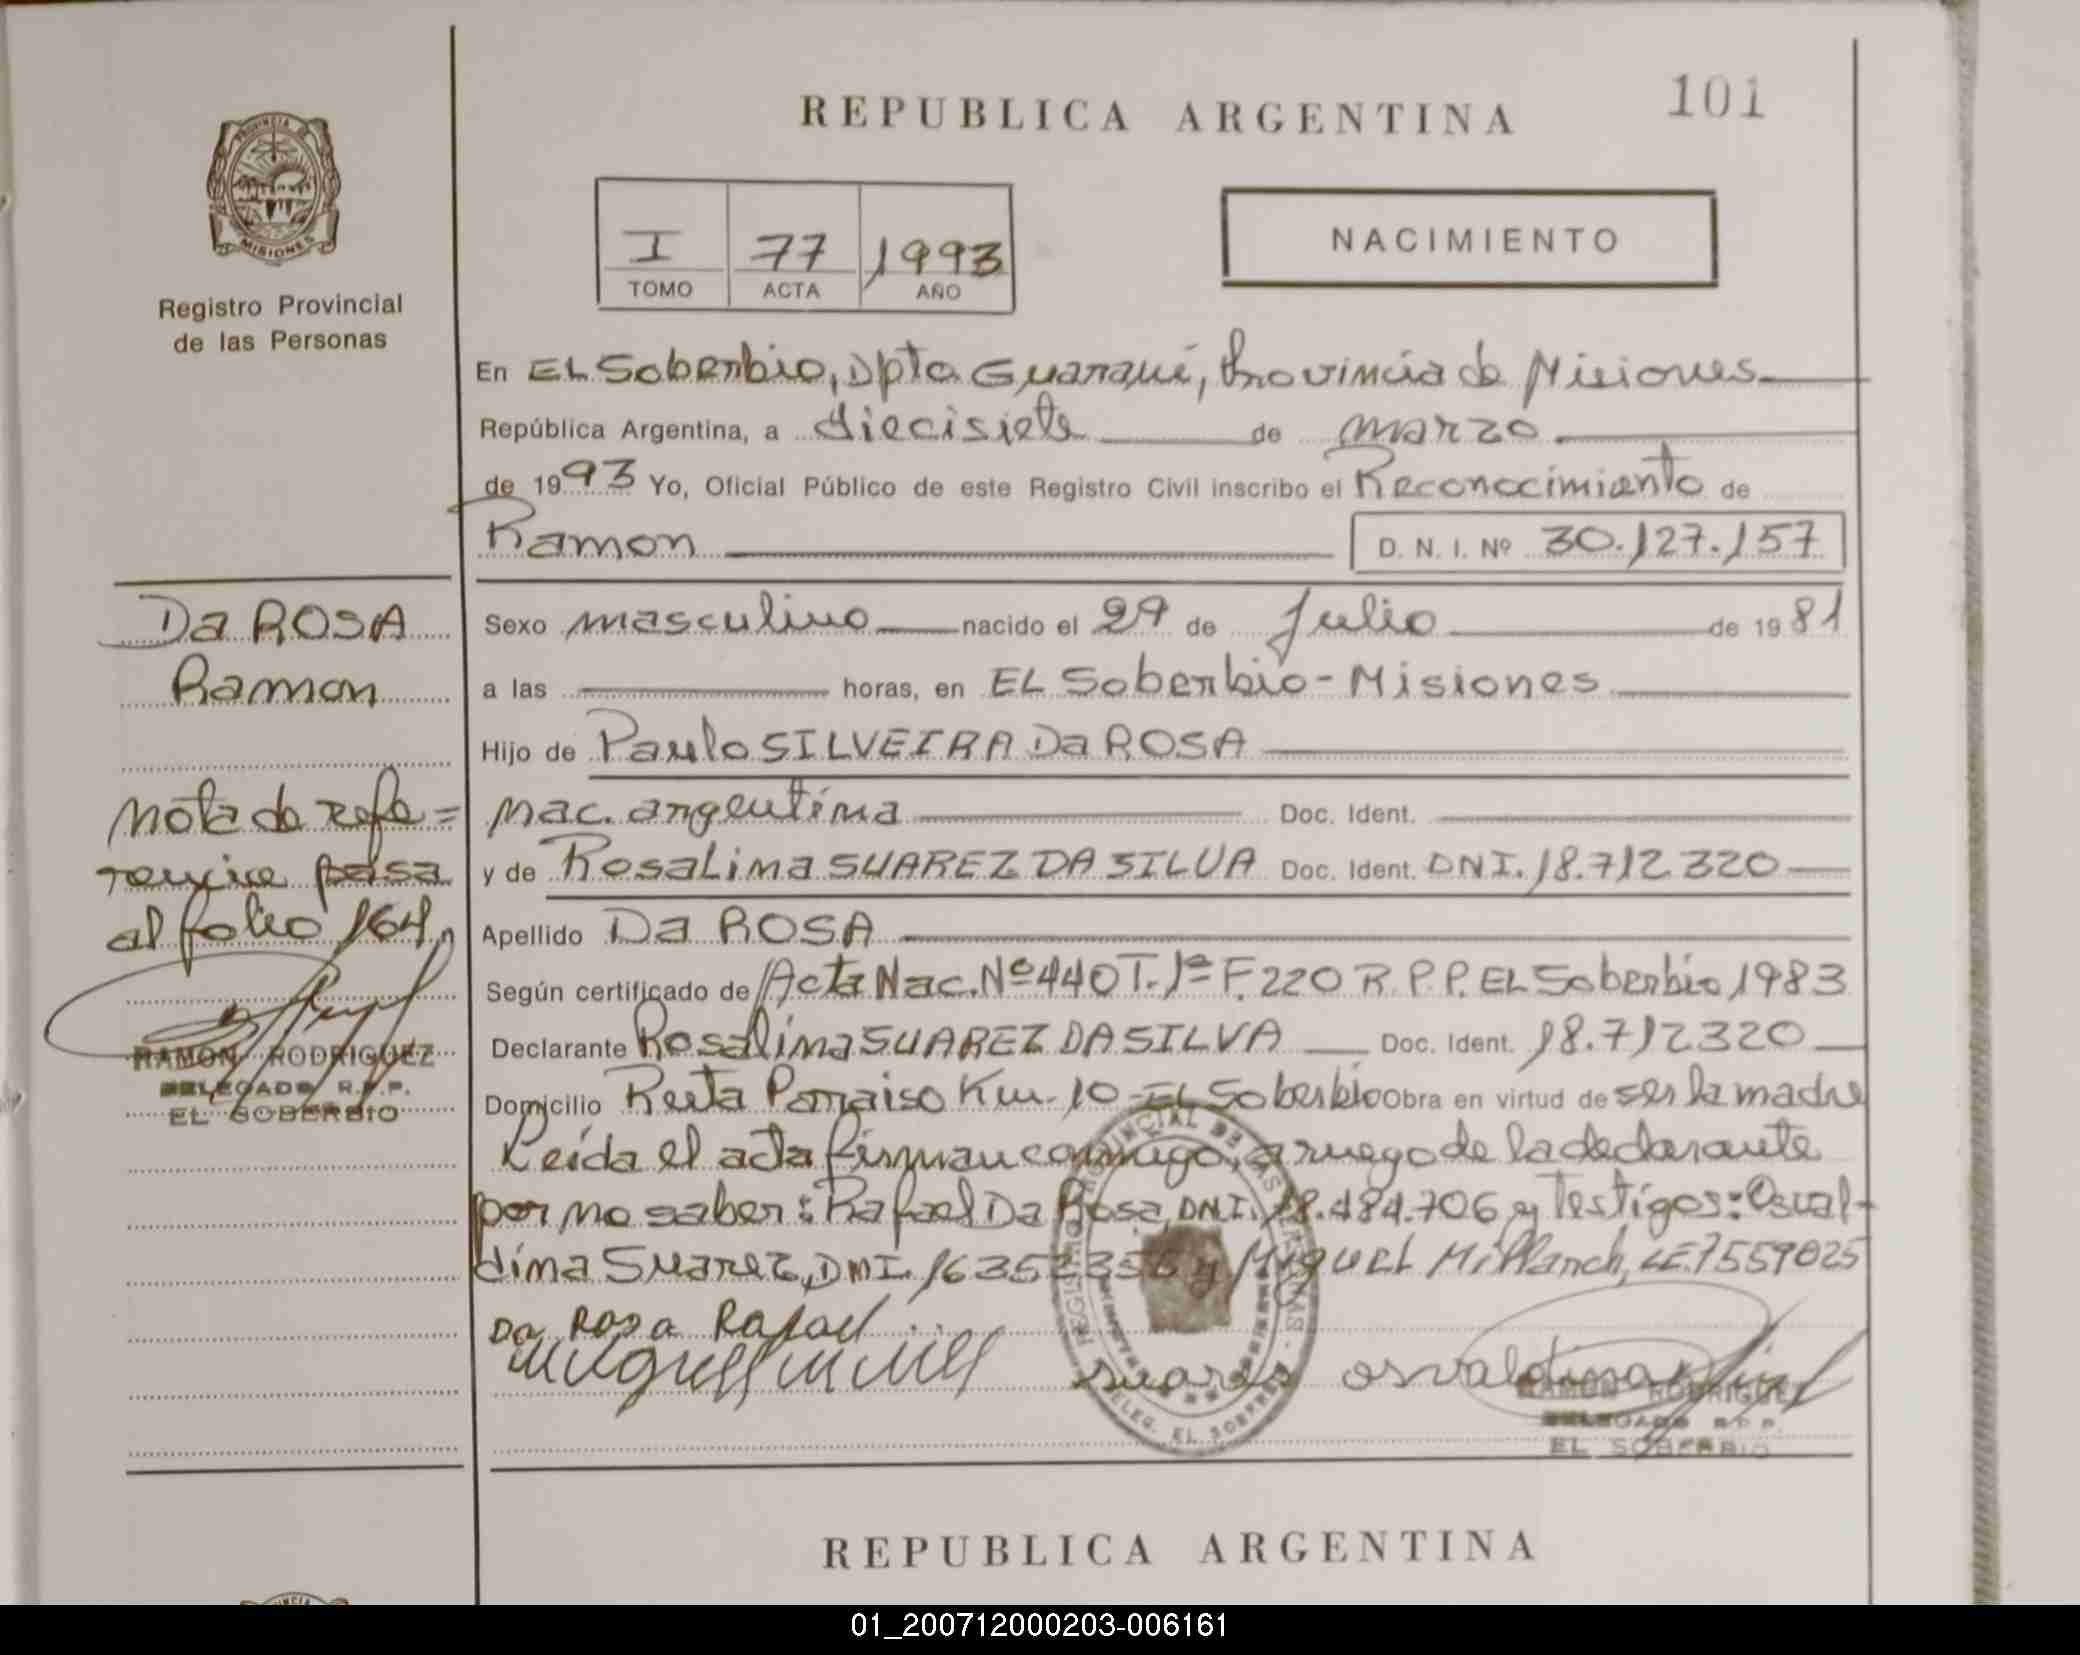 101
REPUBLICA ARGENTINA
PROVINCIA DE
MISIONES
Registro Provincial
de las Personas
I 77 1993
TOMO ACTA AÑO
NACIMIENTO
En EL Soberbio, Dpto Guarani, Provincia de Misiones
República Argentina, a diecisiete de marzo
de 1993 Yo, Oficial Público de este Registro Civil inscribo el Reconocimiento de
Ramon D. N. I. Nº 30.127.157
Da ROSA
Ramon
Sexo masculino nacido el 29 de Julio de 1981
a las horas, en EL Soberbio - Misiones
Hijo de Paulo SILVEIRA Da ROSA
nac. argentina Doc. Ident.
y de RosaLima SUAREZ DA SILVA Doc. Ident. DNI. 18.712320
Apellido Da ROSA
Según certificado de Acta Nac. Nº 440 T. 1º F. 220 R.P.P. EL Soberbio 1983
Declarante Rosalima SUAREZ DA SILVA Doc. Ident. 18.712320
Domicilio Ruta Parraiso Km-10-EL Soberbio Obra en virtud de ser la madre
Leída el acta firman conmigo, a ruego de la declarante
por no saber: Rafael Da Rosa, DNI. 18.484.706 y Testigos: Osval-
dina Suarez, DNI. y Miguel LE. 7559025
Nota de refe=
rencia pasa
al folio 164,
RAMON RODRIGUEZ
DELEGADO R.P.P.
EL SOBERBIO
Da Rosa Rafael
Suares Osvaldina
REGISTRO PROVINCIAL DE LAS PERSONAS
DELEG. EL SOBERBIO
RAMON RODRIGUEZ
DELEGADO R.P.P.
EL SOBERBIO
REPUBLICA ARGENTINA
01_200712000203-006161